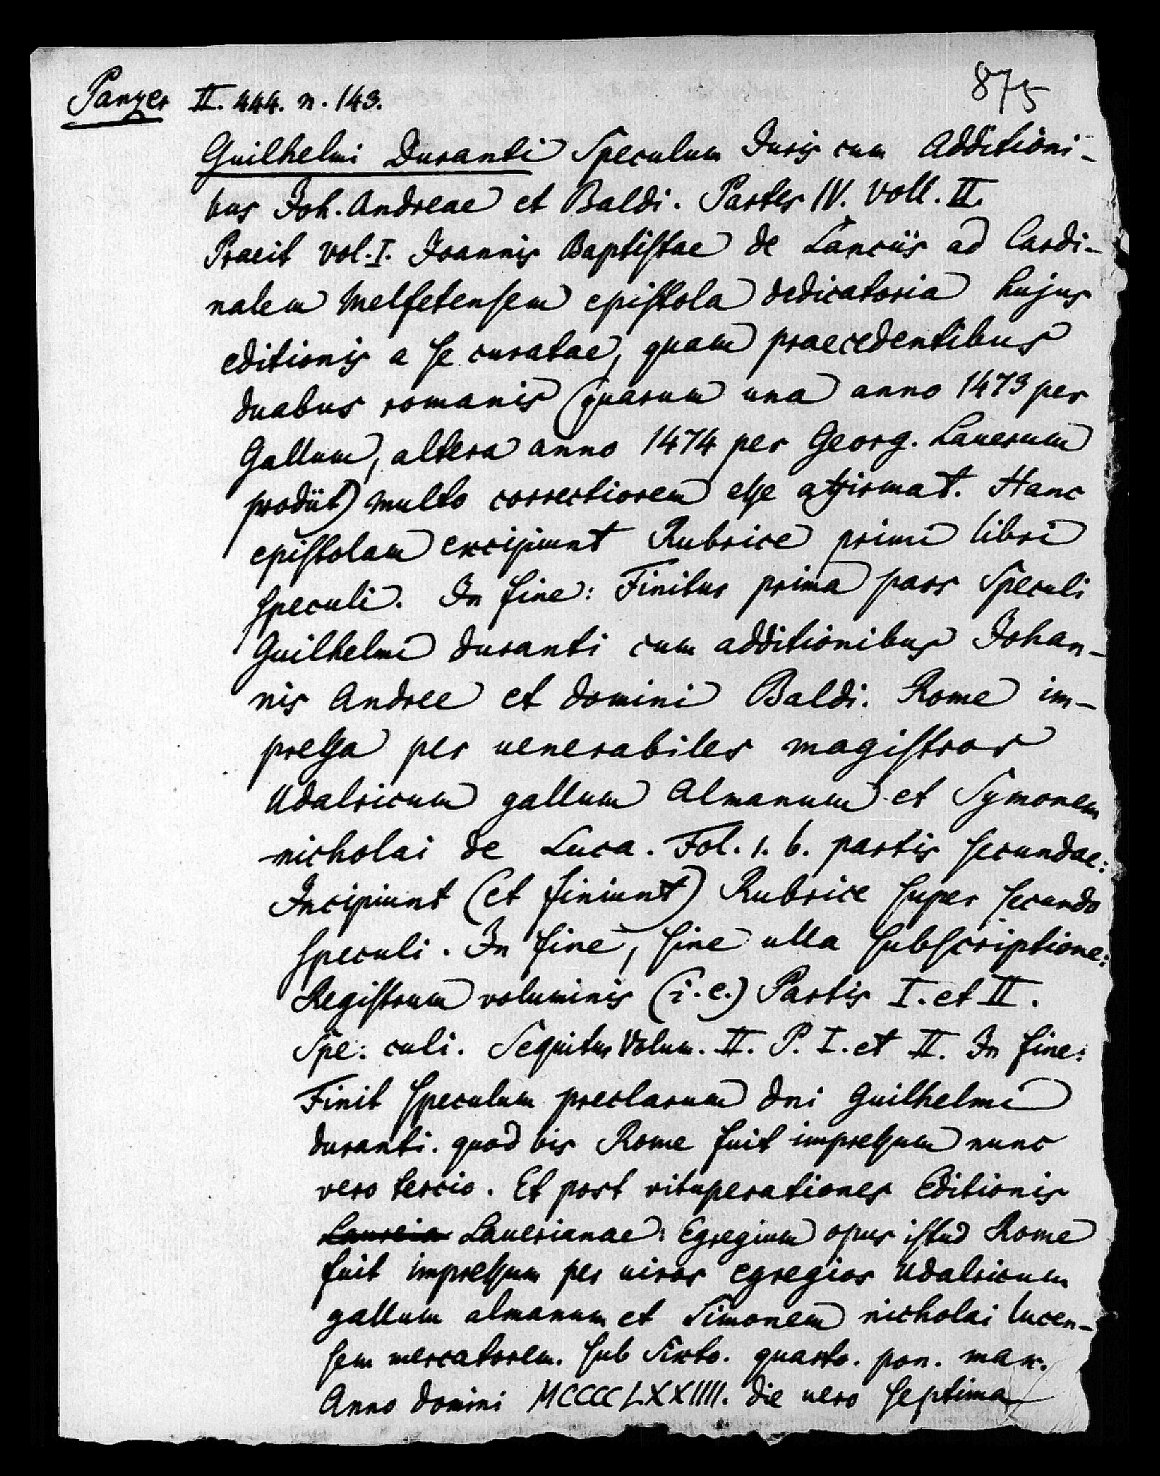 875
Panzer II. 444. n. 143.
Guilhelmi Duranti Speculum Juris cum Additioni-
bus Joh. Andreae et Baldi. Partes IV. Voll. II.
Praeit vol. I. Joannis Baptistae de Lanciis ad Cardi-
nalem Melfetensem epistola dedicatoria hujus
editionis a se curatae, quam praecedentibus
duabus romanis (quarum una anno 1473 per
Gallum, altera anno 1474 per Georg. Lauerum
prodiit) multo correctiorem esse affirmat. Hanc
epistolam excipiunt Rubrice primi libri
speculi. In fine: Finitur prima pars Speculi
Guilhelmi duranti cum additionibus Johan-
nis Andree et domini Baldi. Rome im-
pressa per uenerabiles magistros
Udalricum gallum Almanum et Symonem
nicholai de Luca. Fol. 1. b. partis secundae:
Incipiunt (et finiunt) Rubrice super secundo
speculi. In fine, sine ulla subscriptione:
Registrum voluminis (i. e.) Partis I. et II.
Spe: culi. Sequitur Volum. II. P. I. et II. In fine:
Finit speculum preclarum dni Guilhelmi
duranti. quod bis Rome fuit impressum nunc
vero tercio. Et post vituperationes Editionis
Lauerianae: Egregium opus istud Rome
fuit impressum per uiros egregios Udalricum
gallum almanum et Simonem nicholai lucen-
sem mercatorem. sub Sixto. quarto. pon. max.
Anno domini MCCCCLXXIIII. die uero septima